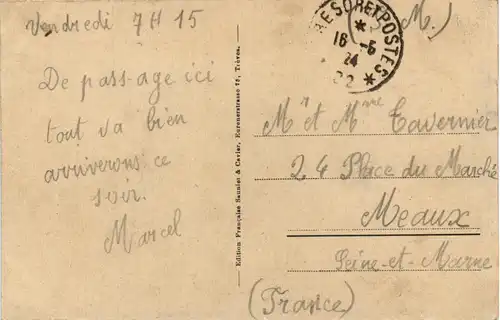 Vendredi 7 H 15
De pass-age ici
tout va bien
arriverons ce
soir.
Marcel
Edition Française Saunier & Cavier, Euronerstrasse 15, Trèves.
TRESOR ET POSTES
16 -5
24
(F.M.)
Mr et Mme Tavernier
24 Place du Marché
Meaux
Seine-et-Marne
(France)